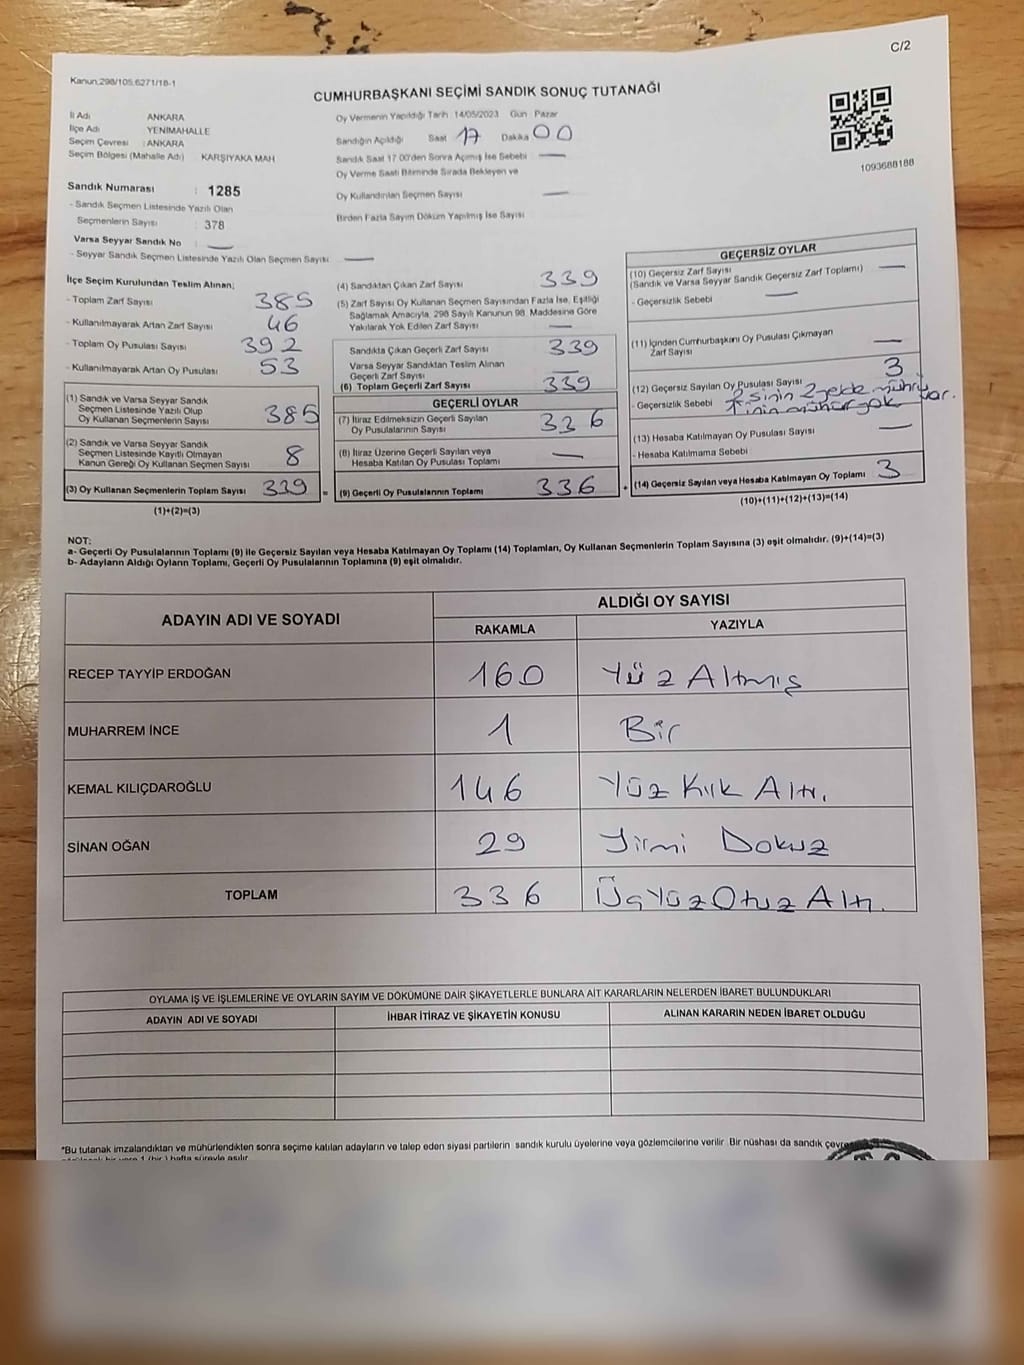 C/2
Kanun.298/105.6271/18-1
CUMHURBAŞKANI SEÇİMİ SANDIK SONUÇ TUTANAĞI
İl Adı ANKARA
İlçe Adı YENİMAHALLE
Seçim Çevresi : ANKARA
Seçim Bölgesi (Mahalle Adı) KARŞIYAKA MAH
Sandık Numarası : 1285
- Sandık Seçmen Listesinde Yazılı Olan
Seçmenlerin Sayısı : 378
Varsa Seyyar Sandık No : —
- Seyyar Sandık Seçmen Listesinde Yazılı Olan Seçmen Sayısı —
Oy Vermenin Yapıldığı Tarih 14/05/2023 Gün Pazar
Sandığın Açıldığı Saat 17 Dakika 00
Sandık Saat 17 00'den Sonra Açımış İse Sebebi —
Oy Verme Saati Bitiminde Sırada Bekleyen ve
Oy Kullandırılan Seçmen Sayısı —
Birden Fazla Sayım Döküm Yapılmış İse Sayısı
1093688188
İlçe Seçim Kurulundan Teslim Alınan;
- Toplam Zarf Sayısı 385
- Kullanılmayarak Artan Zarf Sayısı 46
- Toplam Oy Pusulası Sayısı 392
- Kullanılmayarak Artan Oy Pusulası 53
(1) Sandık ve Varsa Seyyar Sandık
Seçmen Listesinde Yazılı Olup
Oy Kullanan Seçmenlerin Sayısı 385
(2) Sandık ve Varsa Seyyar Sandık
Seçmen Listesinde Kayıtlı Olmayan
Kanun Gereği Oy Kullanan Seçmen Sayısı 8
(3) Oy Kullanan Seçmenlerin Toplam Sayısı 339
(1)+(2)=(3)
(4) Sandıktan Çıkan Zarf Sayısı 339
(5) Zarf Sayısı Oy Kullanan Seçmen Sayısından Fazla İse, Eşitliği
Sağlamak Amacıyla, 298 Sayılı Kanunun 98. Maddesine Göre
Yakılarak Yok Edilen Zarf Sayısı —
Sandıkta Çıkan Geçerli Zarf Sayısı 339
Varsa Seyyar Sandıktan Teslim Alınan
Geçerli Zarf Sayısı —
(6) Toplam Geçerli Zarf Sayısı 339
GEÇERLİ OYLAR
(7) İtiraz Edilmeksizin Geçerli Sayılan
Oy Pusulalarının Sayısı 336
(8) İtiraz Üzerine Geçerli Sayılan veya
Hesaba Katılan Oy Pusulası Toplamı —
= (9) Geçerli Oy Pusulalarının Toplamı 336
GEÇERSİZ OYLAR
(10) Geçersiz Zarf Sayısı —
(Sandık ve Varsa Seyyar Sandık Geçersiz Zarf Toplamı)
- Geçersizlik Sebebi —
(11) İçinden Cumhurbaşkanı Oy Pusulası Çıkmayan
Zarf Sayısı —
(12) Geçersiz Sayılan Oy Pusulası Sayısı 3
- Geçersizlik Sebebi 2 sinin 2 yelde mührü var.
1 inin mühür yok
(13) Hesaba Katılmayan Oy Pusulası Sayısı —
- Hesaba Katılmama Sebebi
+ (14) Geçersiz Sayılan veya Hesaba Katılmayan Oy Toplamı 3
(10)+(11)+(12)+(13)=(14)
NOT:
a- Geçerli Oy Pusulalarının Toplamı (9) ile Geçersiz Sayılan veya Hesaba Katılmayan Oy Toplamı (14) Toplamları, Oy Kullanan Seçmenlerin Toplam Sayısına (3) eşit olmalıdır. (9)+(14)=(3)
b- Adayların Aldığı Oyların Toplamı, Geçerli Oy Pusulalarının Toplamına (9) eşit olmalıdır.
ADAYIN ADI VE SOYADI ALDIĞI OY SAYISI
RAKAMLA YAZIYLA
RECEP TAYYİP ERDOĞAN 160 Yüz Altmış
MUHARREM İNCE 1 Bir
KEMAL KILIÇDAROĞLU 146 Yüz Kırk Altı.
SİNAN OĞAN 29 Yirmi Dokuz
TOPLAM 336 Üç Yüz Otuz Altı.
OYLAMA İŞ VE İŞLEMLERİNE VE OYLARIN SAYIM VE DÖKÜMÜNE DAİR ŞİKAYETLERLE BUNLARA AİT KARARLARIN NELERDEN İBARET BULUNDUKLARI
ADAYIN ADI VE SOYADI İHBAR İTİRAZ VE ŞİKAYETİN KONUSU ALINAN KARARIN NEDEN İBARET OLDUĞU
*Bu tutanak imzalandıktan ve mühürlendikten sonra seçime katılan adayların ve talep eden siyasi partilerin sandık kurulu üyelerine veya gözlemcilerine verilir. Bir nüshası da sandık
1 (bir) hafta süreyle asılır